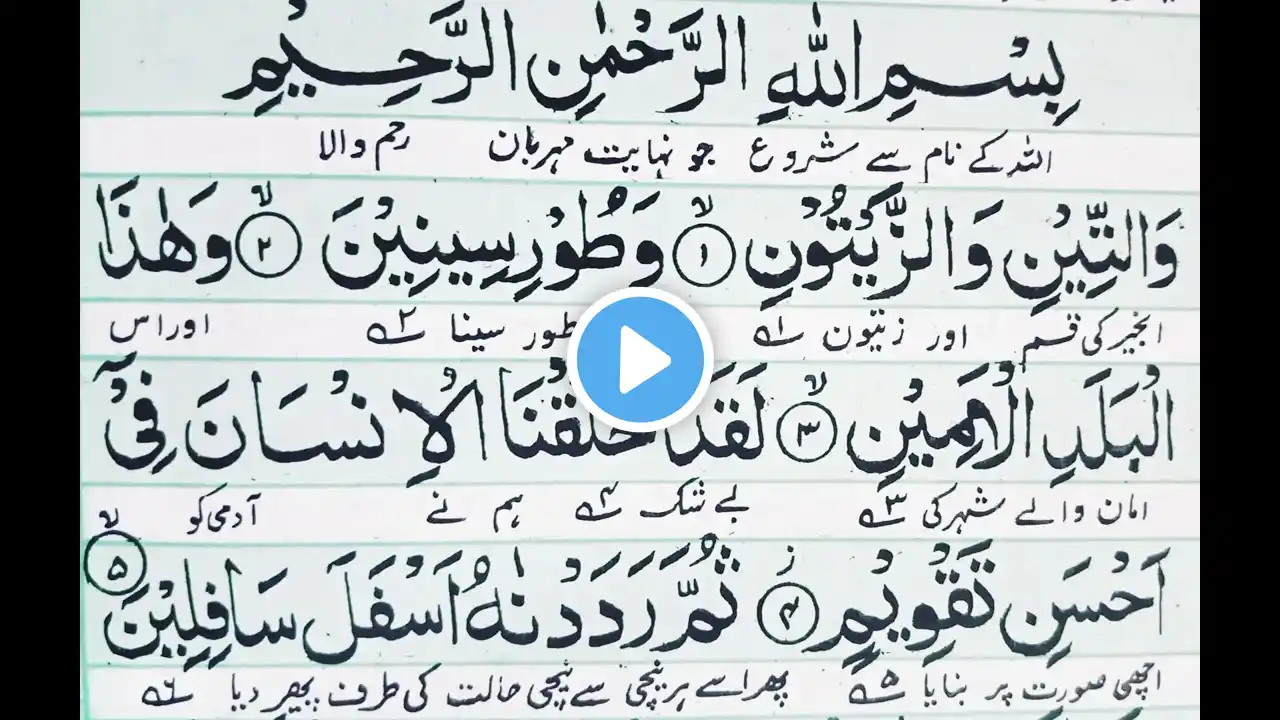 بِسْمِ اللّٰهِ الرَّحْمٰنِ الرَّحِيْمِ
اللہ کے نام سے شروع جو نہایت مہربان رحم والا
وَالتِّيْنِ وَالزَّيْتُوْنِ ۙ۱ وَطُوْرِ سِيْنِيْنَ ۙ۲ وَهٰذَا
انجیر کی قسم اور زیتون ؂۱ طور سینا ؂۲ اور اس
الْبَلَدِ الْاَمِيْنِ ۙ۳ لَقَدْ خَلَقْنَا الْاِنْسَانَ فِيْٓ
امان والے شہر کی ؂۳ بے شک ؂۴ ہم نے آدمی کو
اَحْسَنِ تَقْوِيْمٍ ۴ز ثُمَّ رَدَدْنٰهُ اَسْفَلَ سَافِلِيْنَ ۙ۵
اچھی صورت پر بنایا ؂۵ پھر اسے ہر نیچی سے نیچی حالت کی طرف پھیر دیا ؂۶